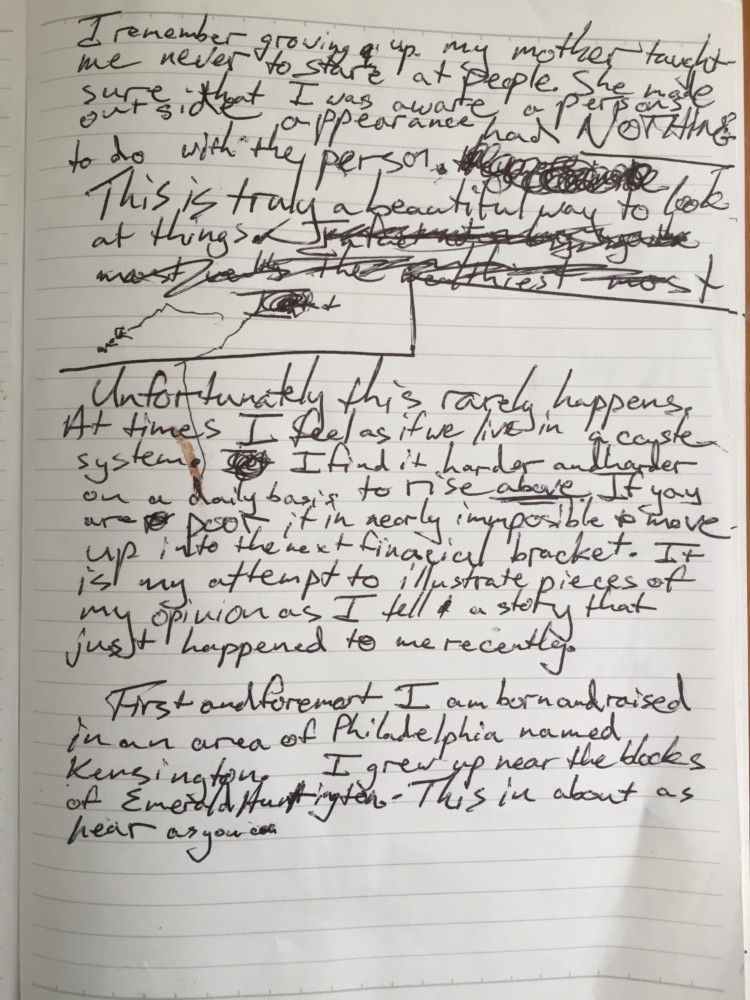 I remember growing up my mother taught
me never to stare at people. She made
sure that I was aware a persons
outside appearance had NOTHING
to do with the person.
This is truly a beautiful way to look
at things.
the healthiest most
Unfortunately this rarely happens.
At times I feel as if we live in a cayste
system. I find it harder and harder
on a daily basis to rise above. If yay
are poor it in nearly immposible to move
up into the next finacical bracket. It
is my attempt to illustrate pieces of
my opinion as I tell a story that
just happened to me recently.
First and foremost I am born and raised
in an area of Philadelphia named
Kensington. I grew up near the blocks
of Emerald Huntington. This in about as
near as you can